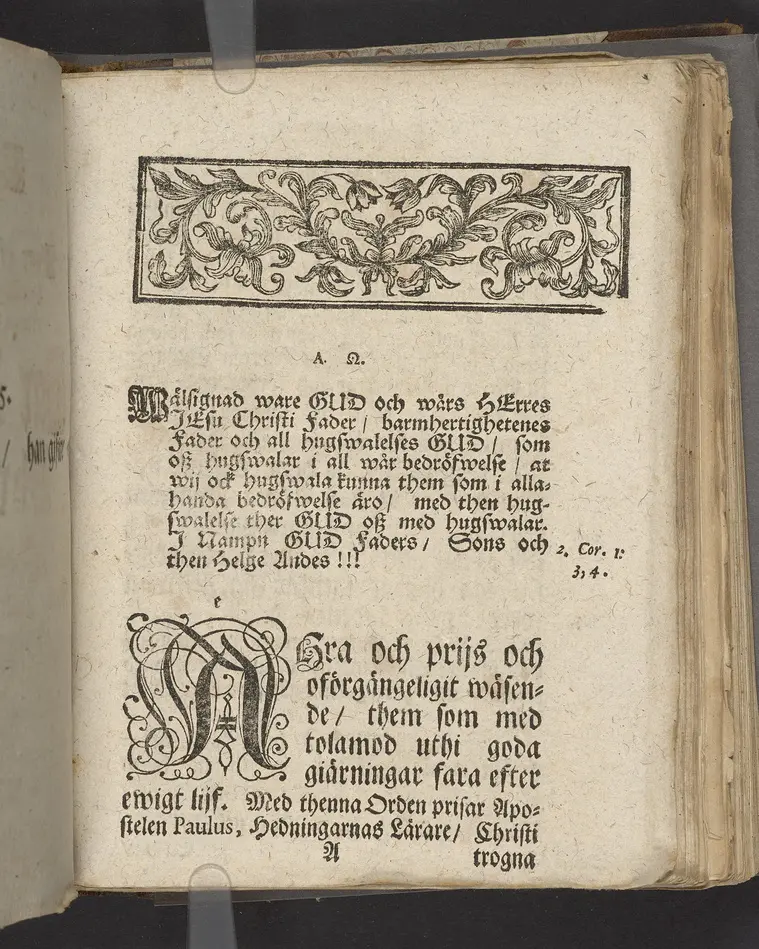 A. Ω.
Wälsignad ware GUD och wårs HErres
JEsu Christi Fader / barmhertighetenes
Fader och all hugswalelses GUD / som
oß hugswalar i all wår bedröfwelse / at
wij ock hugswala kunna them som i alla-
handa bedröfwelse äro / med then hug-
swalelse ther GUD oß med hugswalar.
J Nampn GUD Faders / Sons och
then Helge Andes !!!
2. Cor. 1:
3, 4.
e
AHra och prijs och
oförgängeligit wäsen-
de / them som med
tolamod uthi goda
giärningar fara efter
ewigt lijf. Med thenna Orden prisar Apo-
stelen Paulus, Hedningarnas Lärare / Christi
A
trogna
/ han gifter